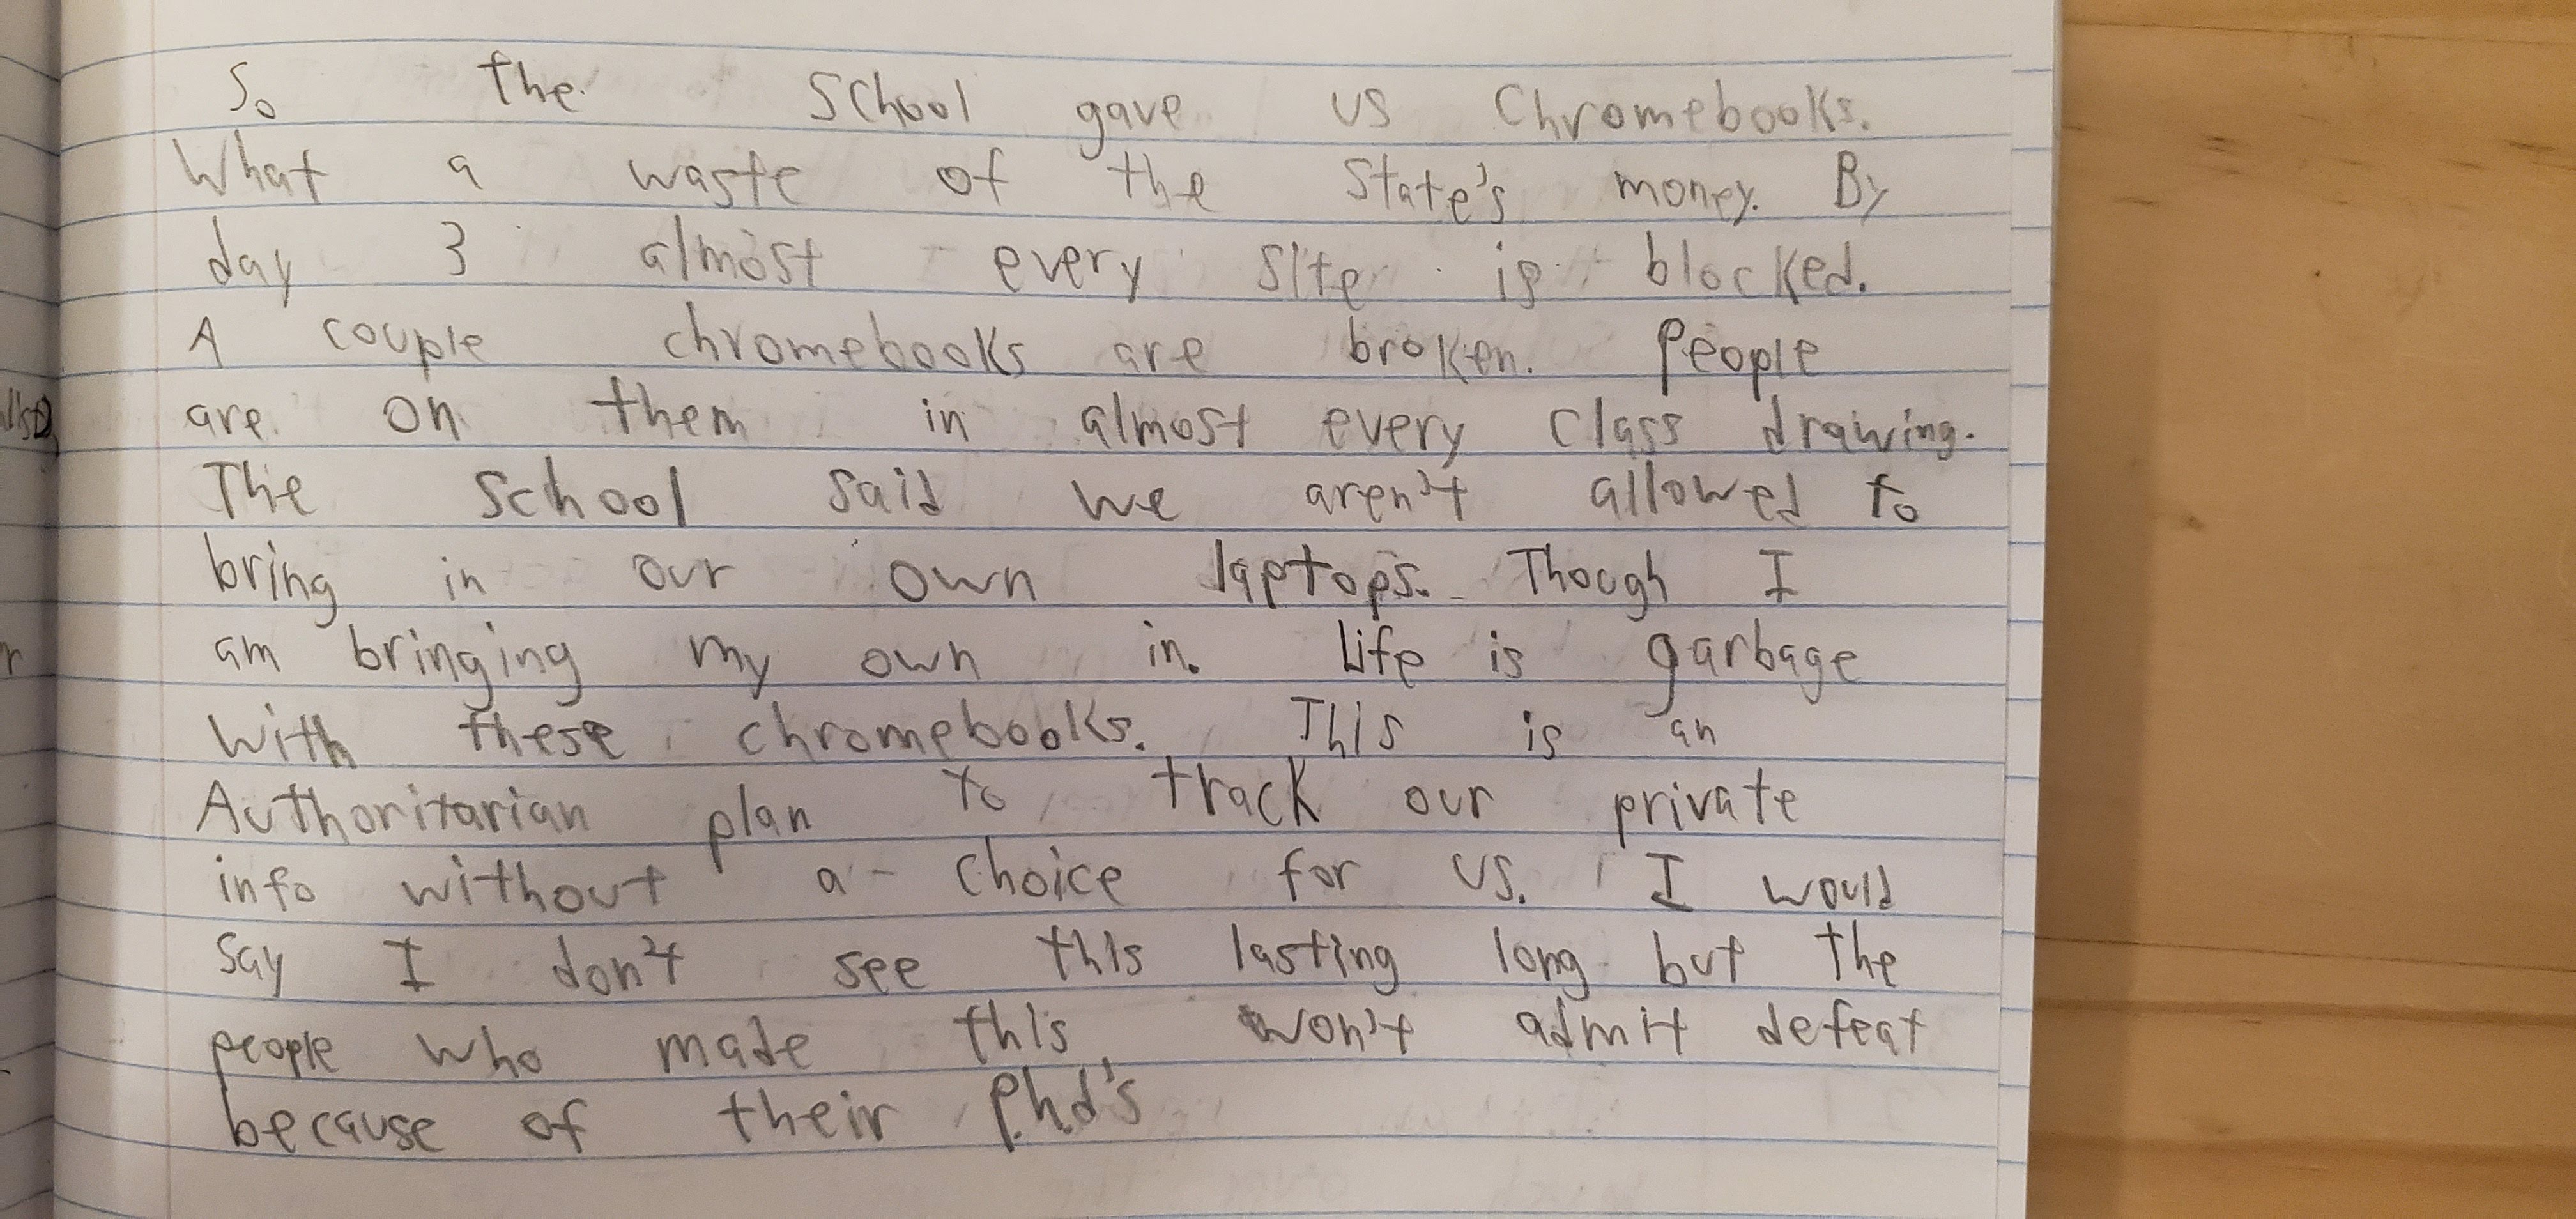 So the School gave us Chromebooks.
What a waste of the State's money. By
day 3 almost every site is blocked.
A couple chromebooks are broken. People
are on them in almost every class draining.
The School said we aren't allowed to
bring in our own laptops. Though I
am bringing my own in. Life is garbage
with these chromebooks. This is an
Authoritarian plan to track our private
info without a choice for us. I would
say I don't see this lasting long but the
people who made this won't admit defeat
because of their P.h.d's